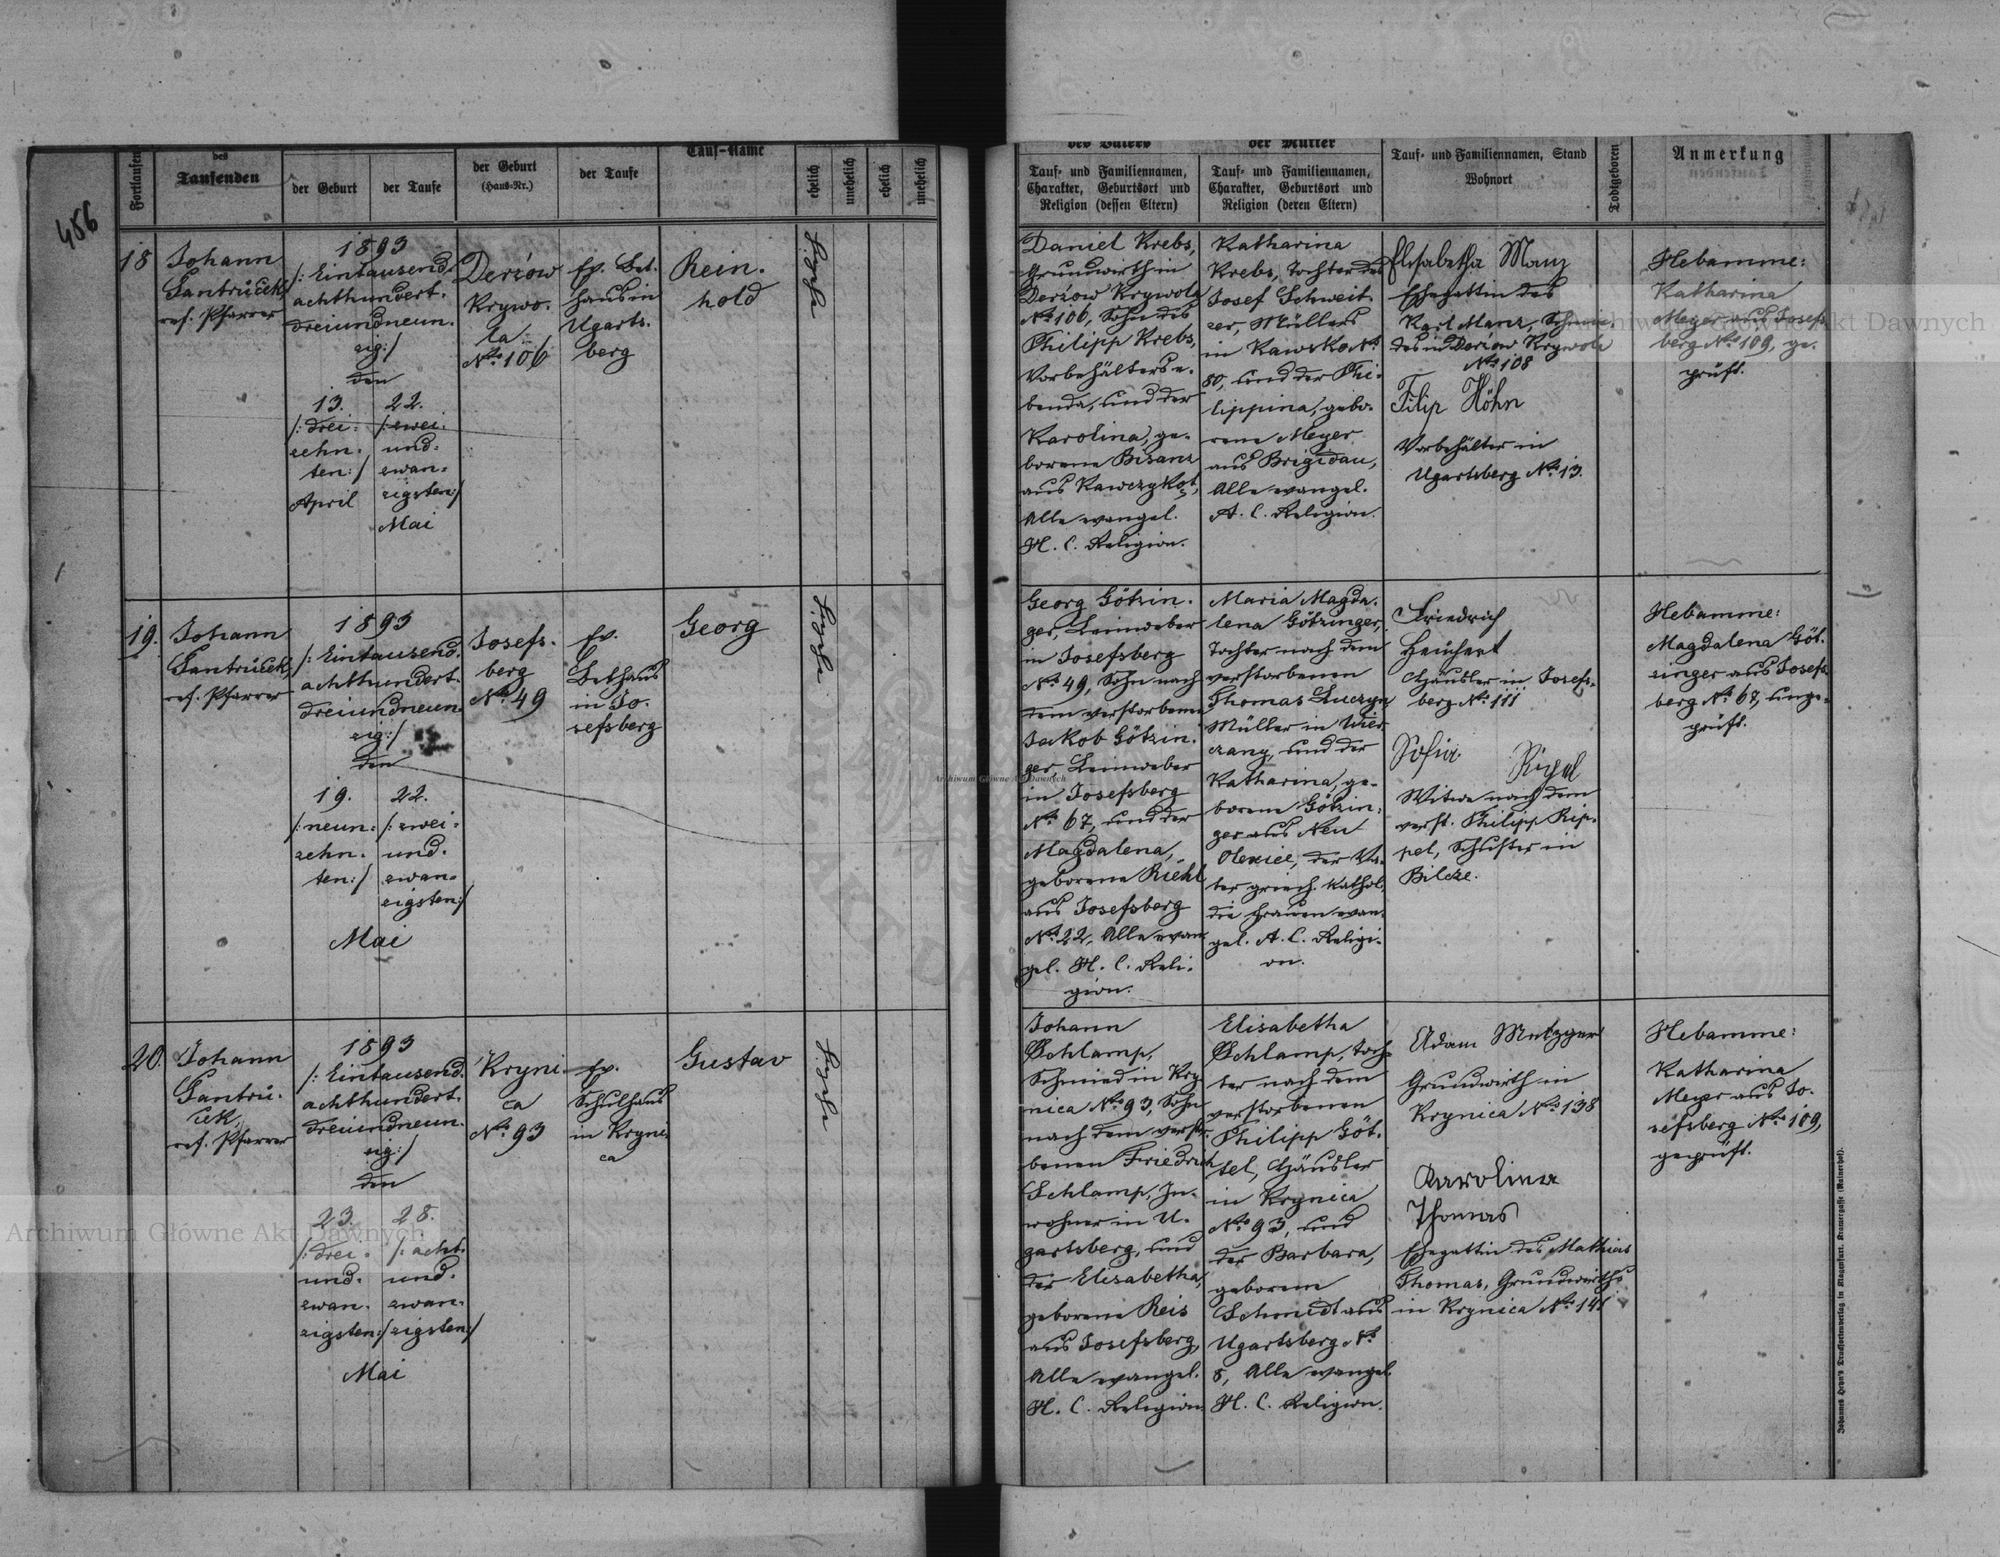 486
Fortlaufen
des
Taufenden
der Geburt
der Taufe
der Geburt
(Haus-Nr.)
der Taufe
Tauf-Name
ehelich
unehelich
ehelich
unehelich
18
Johann
Jantrůček,
ref. Pfarrer
1893
/: Eintausend.
achthundert.
dreiundneun.
zig:/
den
13.
/: drei.
zehn.
ten:/
April
22.
/: zwei.
und.
zwan.
zigsten:/
Mai
Derżow
Krywo.
la
No 106
Ev. Bet.
haus in
Ugarts.
berg
Rein.
hold
19.
Johann
Jantrůček,
ref. Pfarrer
1893
/: Eintausend.
achthundert.
dreiundneun.
zig:/
den
19.
/: neun.
zehn.
ten:/
22.
/: zwei.
und.
zwan.
zigsten:/
Mai
Josefs.
berg
No 49
Ev.
Bethaus
in Jo.
sefsberg
Georg
20.
Johann
Jantrů.
ček,
ref. Pfarrer
1893
/: Eintausend.
achthundert.
dreiundneun.
zig:/
den
23.
/: drei.
und.
zwan.
zigsten:/
28.
/: acht.
und.
zwan.
zigsten:/
Mai
Kryni.
ca
No 93
Ev.
Schulhaus
in Kryni.
ca
Gustav
des Vaters
Tauf- und Familiennamen,
Charakter, Geburtsort und
Religion (dessen Eltern)
der Mutter
Tauf- und Familiennamen,
Charakter, Geburtsort und
Religion (deren Eltern)
Tauf- und Familiennamen, Stand
Wohnort
Todtgeboren
Anmerkung
Daniel Krebs,
Grundwirth in
Derżow Krywola
No 106, Sohn des
Philipp Krebs,
Vorbehälters e.
benda, und der
Karolina, ge.
borene Bisanz
aus Rawczykot,
Alle evangel.
H. C. Religion.
Katharina
Krebs, Tochter des
Josef Schweit.
zer, Müllers
in Kawsko No
80, und der Phi.
lippina, gebo.
rene Meyer
aus Brigidau,
Alle evangel.
A. C. Religion.
Elisabetha Manz
Ehegattin des
Karl Manz,
des in Derżow Krywola
No 108
Filip Höhn
Vorbehälter in
Ugartsberg No 13.
Hebamme:
Katharina
Meyer aus Josefs
berg No 109, ge.
prüft.
Georg Götzin.
ger, Leinweber
in Josefsberg
No 49, Sohn nach
dem verstorbenen
Jakob Götzin.
ger Leinweber
in Josefsberg
No 67, und der
Magdalena,
geborene Riehl
aus Josefsberg
No 22, Alle evan
gel. H. C. Reli.
gion.
Maria Magda.
lena Götzinger,
Tochter nach dem
verstorbenen
Thomas
Müller in Wier
czany, und der
Katharina, ge.
borene Götzin.
ger aus Neu
Olexice, der Va.
ter griech. kathol.
die Frauen evan.
gel. A. C. Religi.
on.
Friedrich
Heuchert
Häusler in Josefs.
berg No 111
Sofia
Witwe nach dem
verst. Philipp Rip.
pel, Schuster in
Bilcze.
Hebamme:
Magdalena Göt.
zinger aus Josefs
berg No 67, unge.
prüft.
Johann
Schlamp,
Schmied in Kry
nica No 93, Sohn
nach dem verstor.
benen Friedrich
Schlamp, In.
wohner in U.
gartsberg, und
der Elisabetha,
geborene Reis
aus Josefsberg,
Alle evangel.
H. C. Religion
Elisabetha
Schlamp, Toch.
ter nach dem
verstorbenen
Philipp Göt.
tel, Häusler
in Krynica
No 93, und
der Barbara,
geborene
Schmidt aus
Ugartsberg No
8, Alle evangel.
H. C. Religion.
Adam Metzger
Grundwirth in
Krynica No 138
Karolina
Thomas
Ehegattin des Mathias
Thomas, Grundwirths
in Krynica No 141
Hebamme:
Katharina
Meyer aus Jo.
sefsberg No 109,
geprüft.
Archiwum Główne Akt Dawnych
Archiwum Główne Akt Dawnych
Archiwum Główne Akt Dawnych